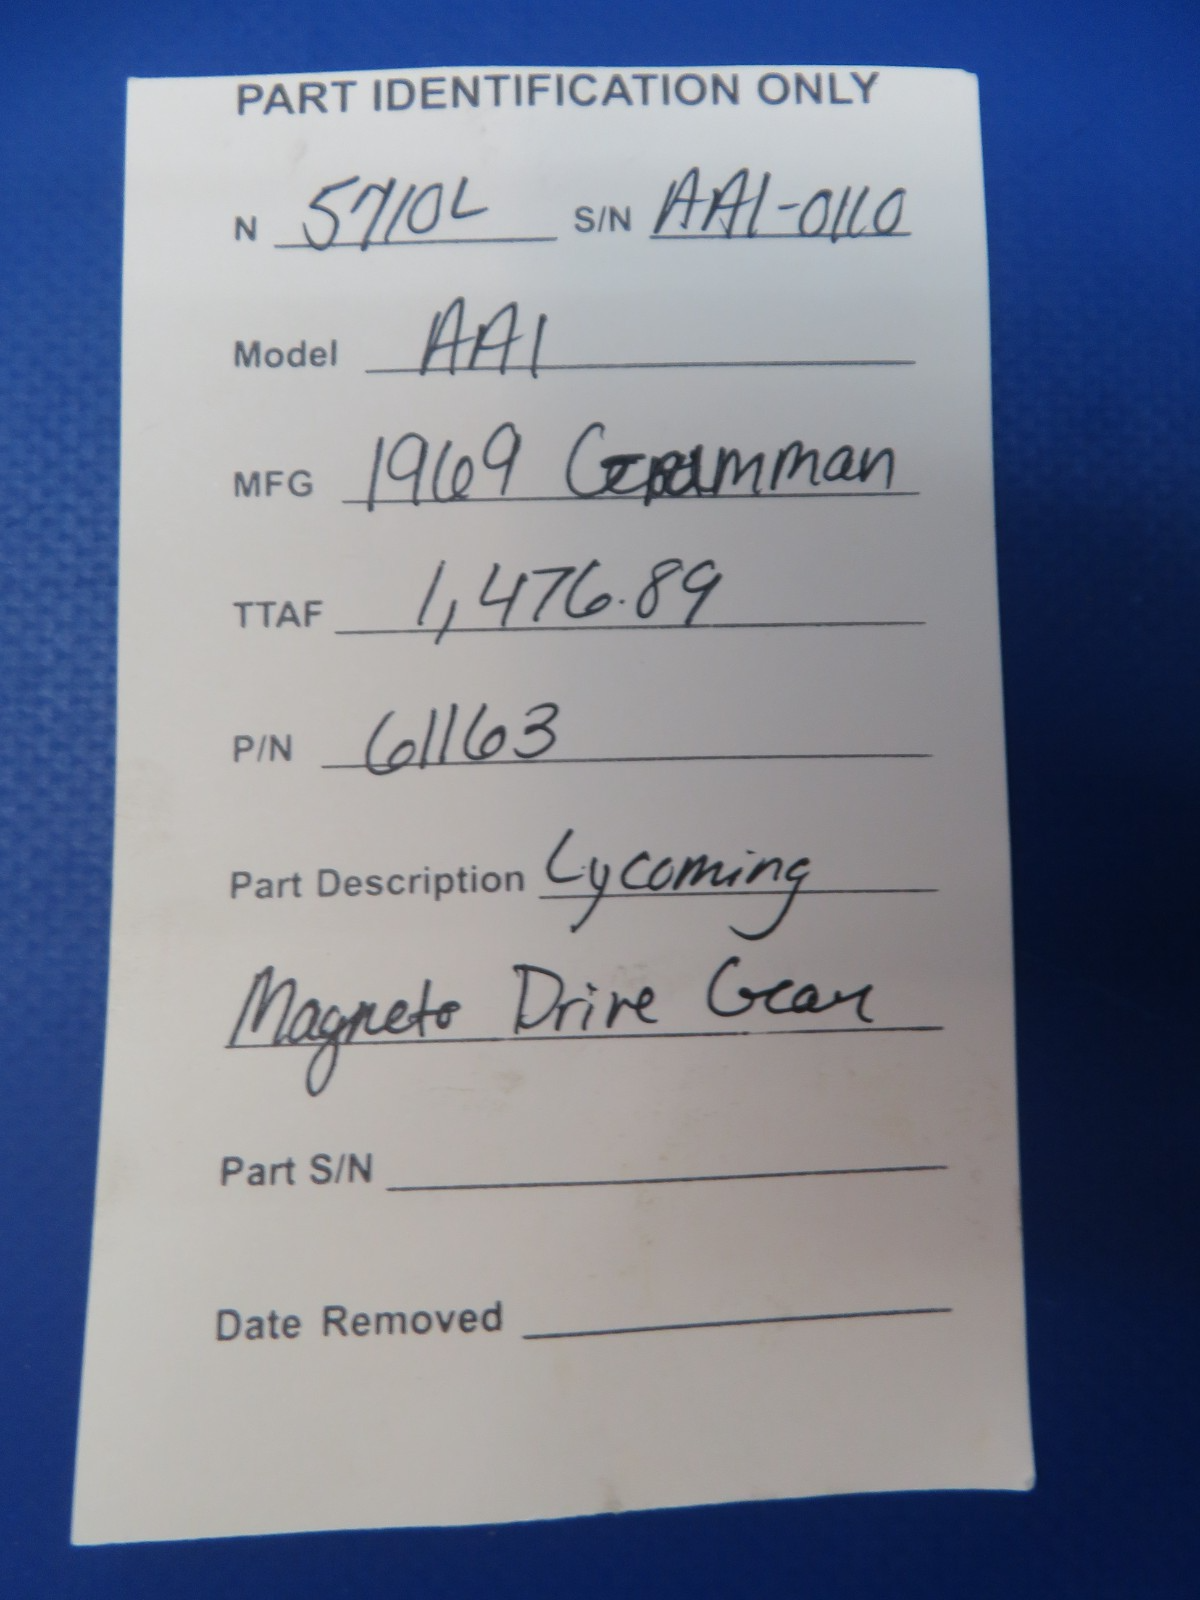 PART IDENTIFICATION ONLY
N 5710L S/N AA1-0110
Model AA1
MFG 1969 Grumman
TTAF 1,476.89
P/N 61163
Part Description Lycoming
Magneto Drive Gear
Part S/N
Date Removed